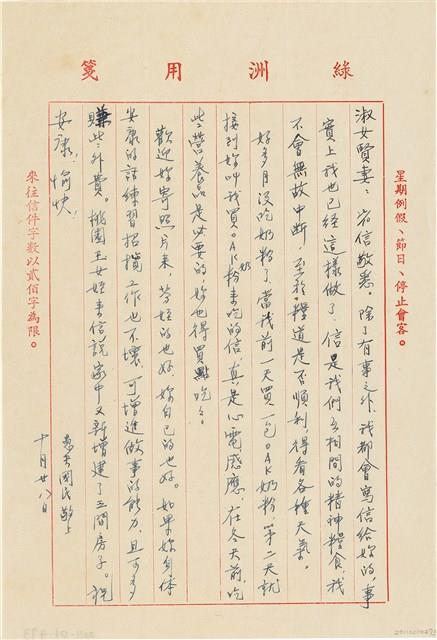 綠洲用箋
星期例假、節日、停止會客。
淑女賢妻：來信敬悉。除了有事之外，我都會寫信給妳的，事
實上我也已經這樣做了。信是我們互相間的精神糧食，我
不會無故中斷，至於糧道是否順利，得看各種天氣。
好多月沒吃奶粉了，當我前一天買一包OAK奶粉，第二天就
接到妳叫我買OAK奶粉來吃的信，真是心電感應，在冬天前，吃
些營養品是必要的，妳也得買點吃吃。
歡迎妳寄照片來，芬姪的也好，妳自己的也好。如果妳身体
安康的話練習招攬工作也不壞，可增進做事的能力，且可多
賺些外費。桃園玉女姪來信說家中又新增建了三間房子。祝
安康！愉快！
愚夫國民敬上
十月廿八日
來往信件字數以貳佰字為限。